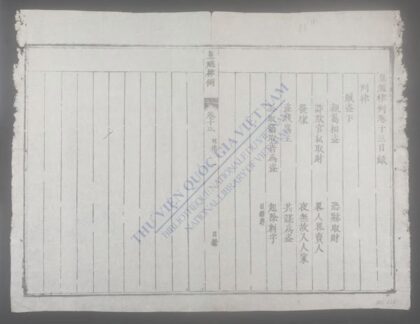 皇越律例卷十三目錄
刑律
賊盜下
親屬相盜 恐嚇取財
詐欺官私取財 畧人畧賣人
發塚 夜無故入人家
盜賊窩主 共謀為盜
公取竊取皆為盜 起除刺字
目錄終
皇越律例 卷十三 目錄
THƯ VIỆN QUỐC GIA VIỆT NAM
BIBLIOTHÈQUE NATIONALE DU VIETNAM
NATIONAL LIBRARY OF VIETNAM